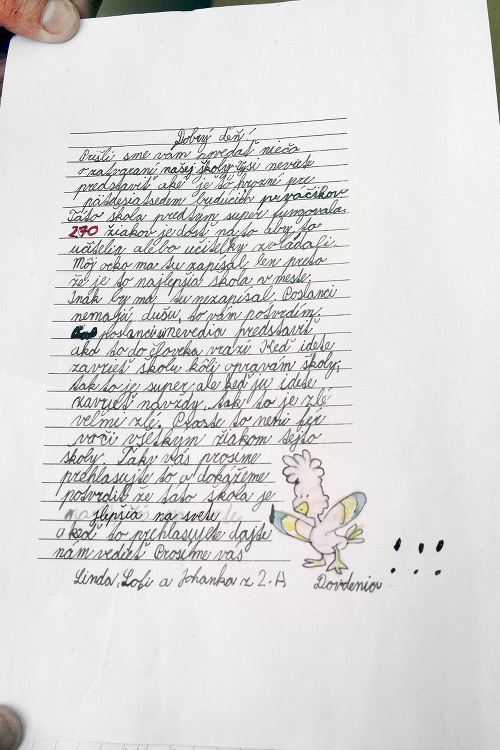 Dobrý deň!
Prišli sme vám povedať niečo
o zatvraní našej školy. Vysi nevite
predstaviť aké je to hrozné pre
päťdesiatsedem budúcich prváčikov
Táto škola predsym super fungovala.
270 žiakov je dosť na to aby to
učitelia alebo učiteľky zvládali.
Môj ocko ma su zapísal len preto
že je to najlepšia škola v meste.
Inak by ma su nezapísal. Poslanci
nemajú dušu, to vám potvrdím.
poslanci nevedia predstaviť
ako to do človeka vrazí Keď idete
zavrieť školu kôli opravám školy,
tak to je super, ale keď ju idete
zavrieť navždy, tak to je zlé
veľmi zlé. Proste to neni fér
voči všetkým žiakom tejto
školy. Taky vás prosíme
prehlasujte to a dokážeme
potvrdiť že táto škola je
najlepšia na svete
a keď to prehlasujete dajte
nám vedieť Prosíme vás
Linda, Sofi a Johanka z 2.A Dovidenia !!!